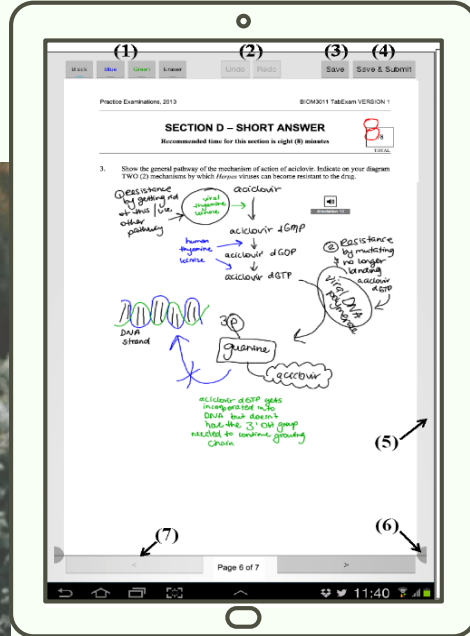 (1)
(2)
(3)
(4)
Black
Blue
Green
Eraser
Undo
Redo
Save
Save & Submit
Practice Examinations, 2013
BIOM3011 TabExam VERSION 1
SECTION D – SHORT ANSWER
Recommended time for this section is eight (8) minutes
8
8
TOTAL
3. Show the general pathway of the mechanism of action of aciclovir. Indicate on your diagram
TWO (2) mechanisms by which Herpes viruses can become resistant to the drug.
① Resistance
by getting rid
of this / use
other
pathway
viral
thymine
kinase
aciclovir
aciclovir dGMP
human
thymine
kinase
aciclovir dGDP
aciclovir dGTP
② Resistance
by mutating
no longer
binding
aciclovir
dGTP
viral DNA
polymerase
DNA
strand
3P
guanine
aciclovir
aciclovir dGTP gets
incorporated into
DNA but doesn't
have the 3' OH group
needed to continue growing
chain
(5)
(6)
(7)
<
Page 6 of 7
>
11:40